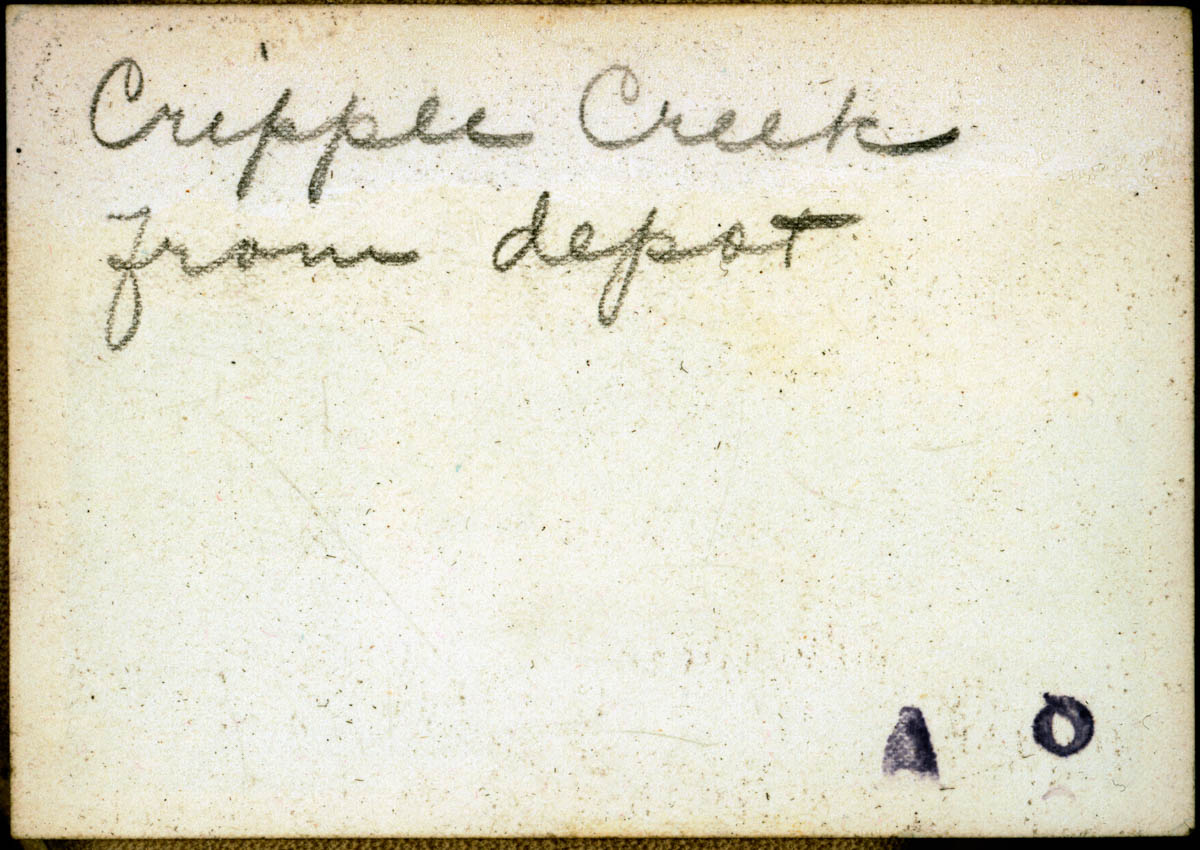 Cripple Creek
from depot